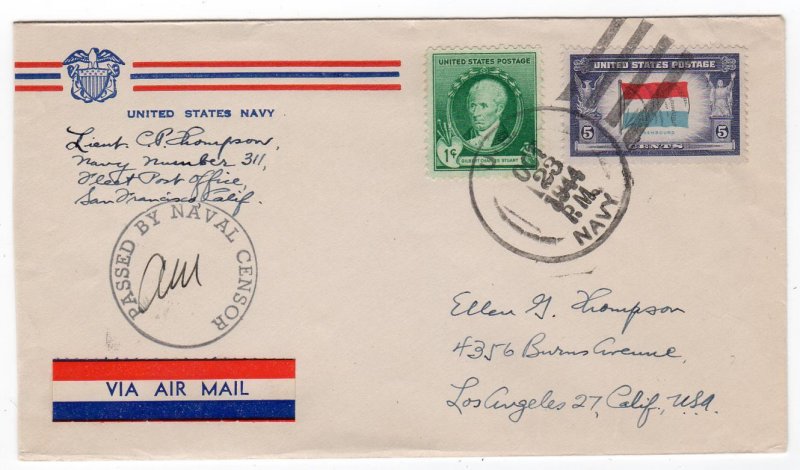 UNITED STATES NAVY
Lieut. C.P. Thompson,
Navy Number 311,
Fleet Post Office,
San Francisco, Calif.
PASSED BY NAVAL CENSOR
VIA AIR MAIL
UNITED STATES POSTAGE
1¢
GILBERT CHARLES STUART
UNITED STATES POSTAGE
LUXEMBOURG
5 5
CENTS
23
1944
P.M.
NAVY
Ellen G. Thompson
4356 Burns Avenue,
Los Angeles 27, Calif., USA.